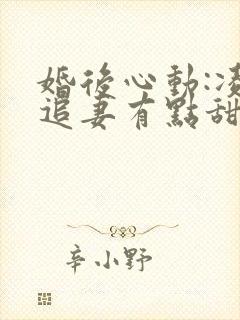 婚後心動:
追妻有點甜
辛小野